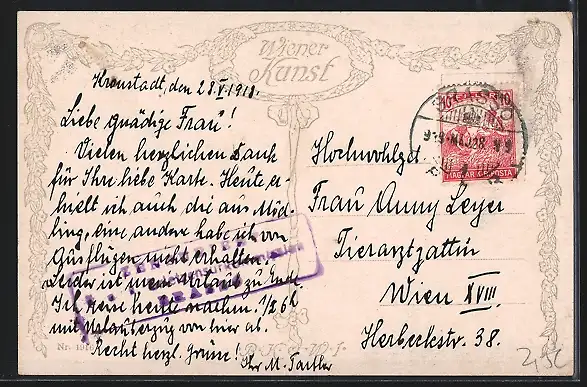 Wiener
Kunst
Kronstadt, den 28.V.1918.
Liebe gnädige Frau!
Vielen herzlichen Dank
für Ihre liebe Karte. Heute er-
hielt ich auch die aus Möd-
ling, eine andere habe ich von
Ausflügen nicht erhalten.
Leider ist mein Urlaub zu Ende.
Ich reise heute nachm. 1/2 6h
mit Urlauberzug von hier ab.
Recht herzl. Grüsse!
Ihr M.
Hochwohlgeb.
Frau Anny Leyer
Tierarztgattin
Wien XVIII
Herbeckstr. 38.
BRASSÓ
10 10
MAGYAR KIR. POSTA
ZENSURIERT
BRASSÓ
Nr.
B.K.W.I.